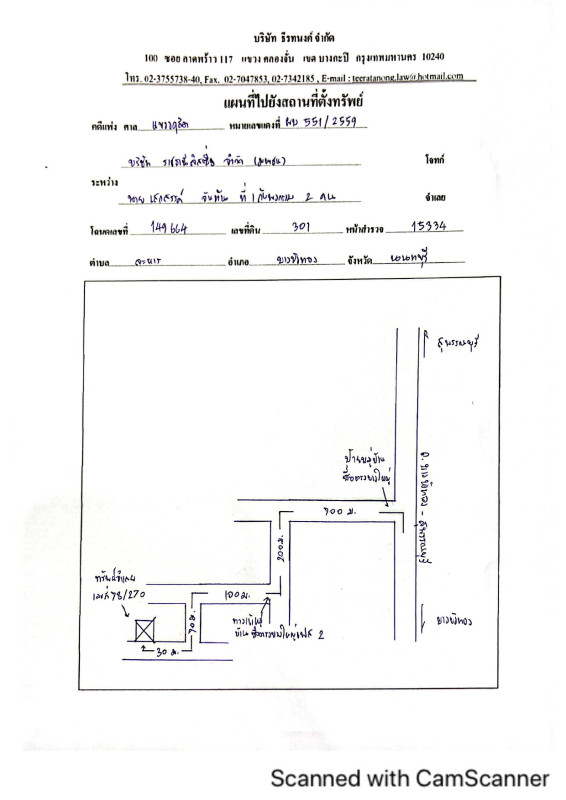 บริษัท ธีรทนงค์ จำกัด
100 ซอย ลาดพร้าว 117 แขวง คลองจั่น เขต บางกะปี กรุงเทพมหานคร 10240
โทร. 02-3755738-40, Fax. 02-7047853, 02-7342185 , E-mail : teeratanong.law@hotmail.com
แผนที่ไปยังสถานที่ตั้งทรัพย์
คดีแพ่ง ศาล แขวงดุสิต หมายเลขแดงที่ ผบ 551/2559
บริษัท ราชธานีลิสซิ่ง จำกัด (มหาชน) โจทก์
ระหว่าง
นาย จันทัน ที่ 1 กับพวกรวม 2 คน จำเลย
โฉนดเลขที่ 149664 เลขที่ดิน 301 หน้าสำรวจ 15334
ตำบล อำเภอ บางบัวทอง จังหวัด นนทบุรี
สุพรรณบุรี
ถ. บางบัวทอง - สุพรรณบุรี
ป้ายหมู่บ้าน
700 ม.
200 ม.
ทรัพย์จำเลย
เลขที่ 78/270
100 ม.
70 ม.
ทางเข้าหมู่
บ้าน 2
30 ม.
บางบัวทอง
Scanned with CamScanner